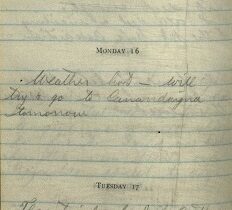 MONDAY 16
Weather hot – will
try & go to Canandagna
tomorrow
TUESDAY 17
The